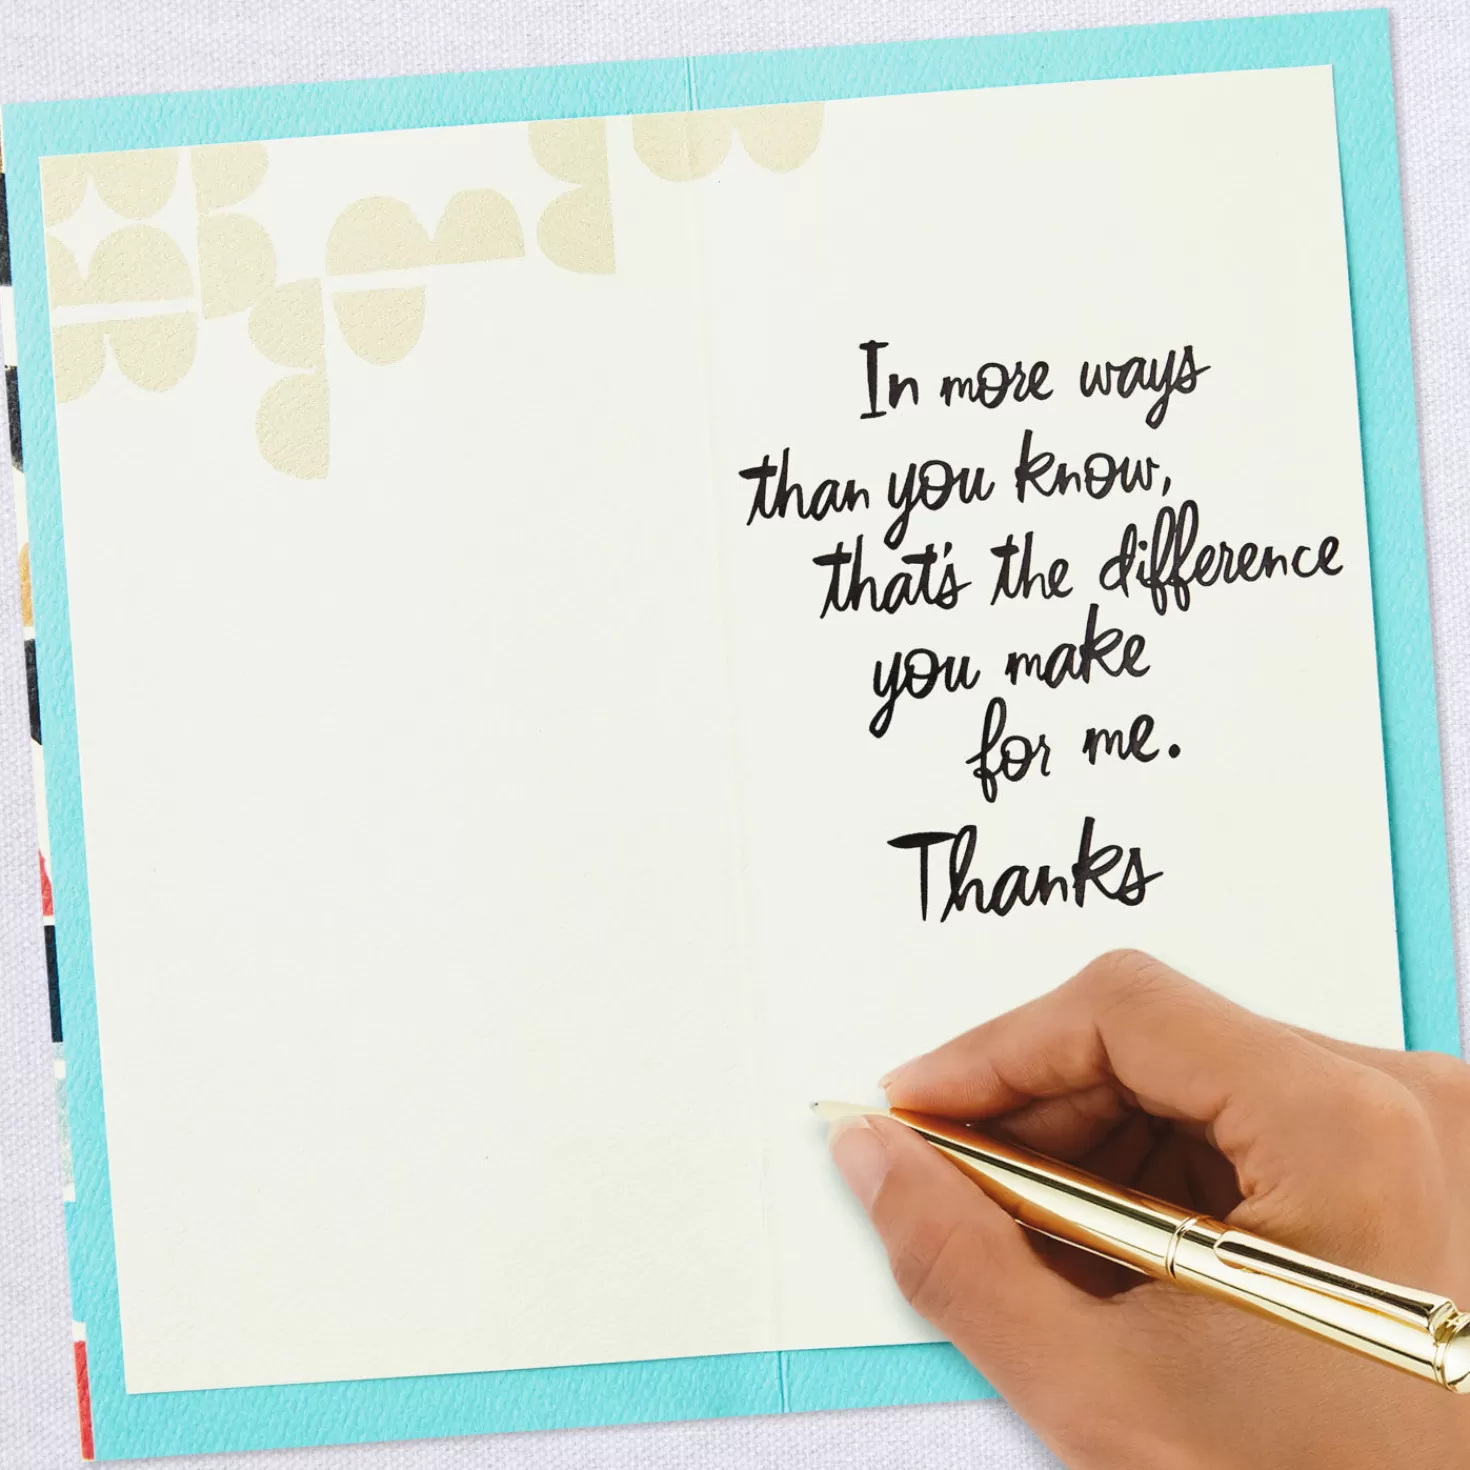 In more ways
than you know,
that's the difference
you make
for me.
Thanks